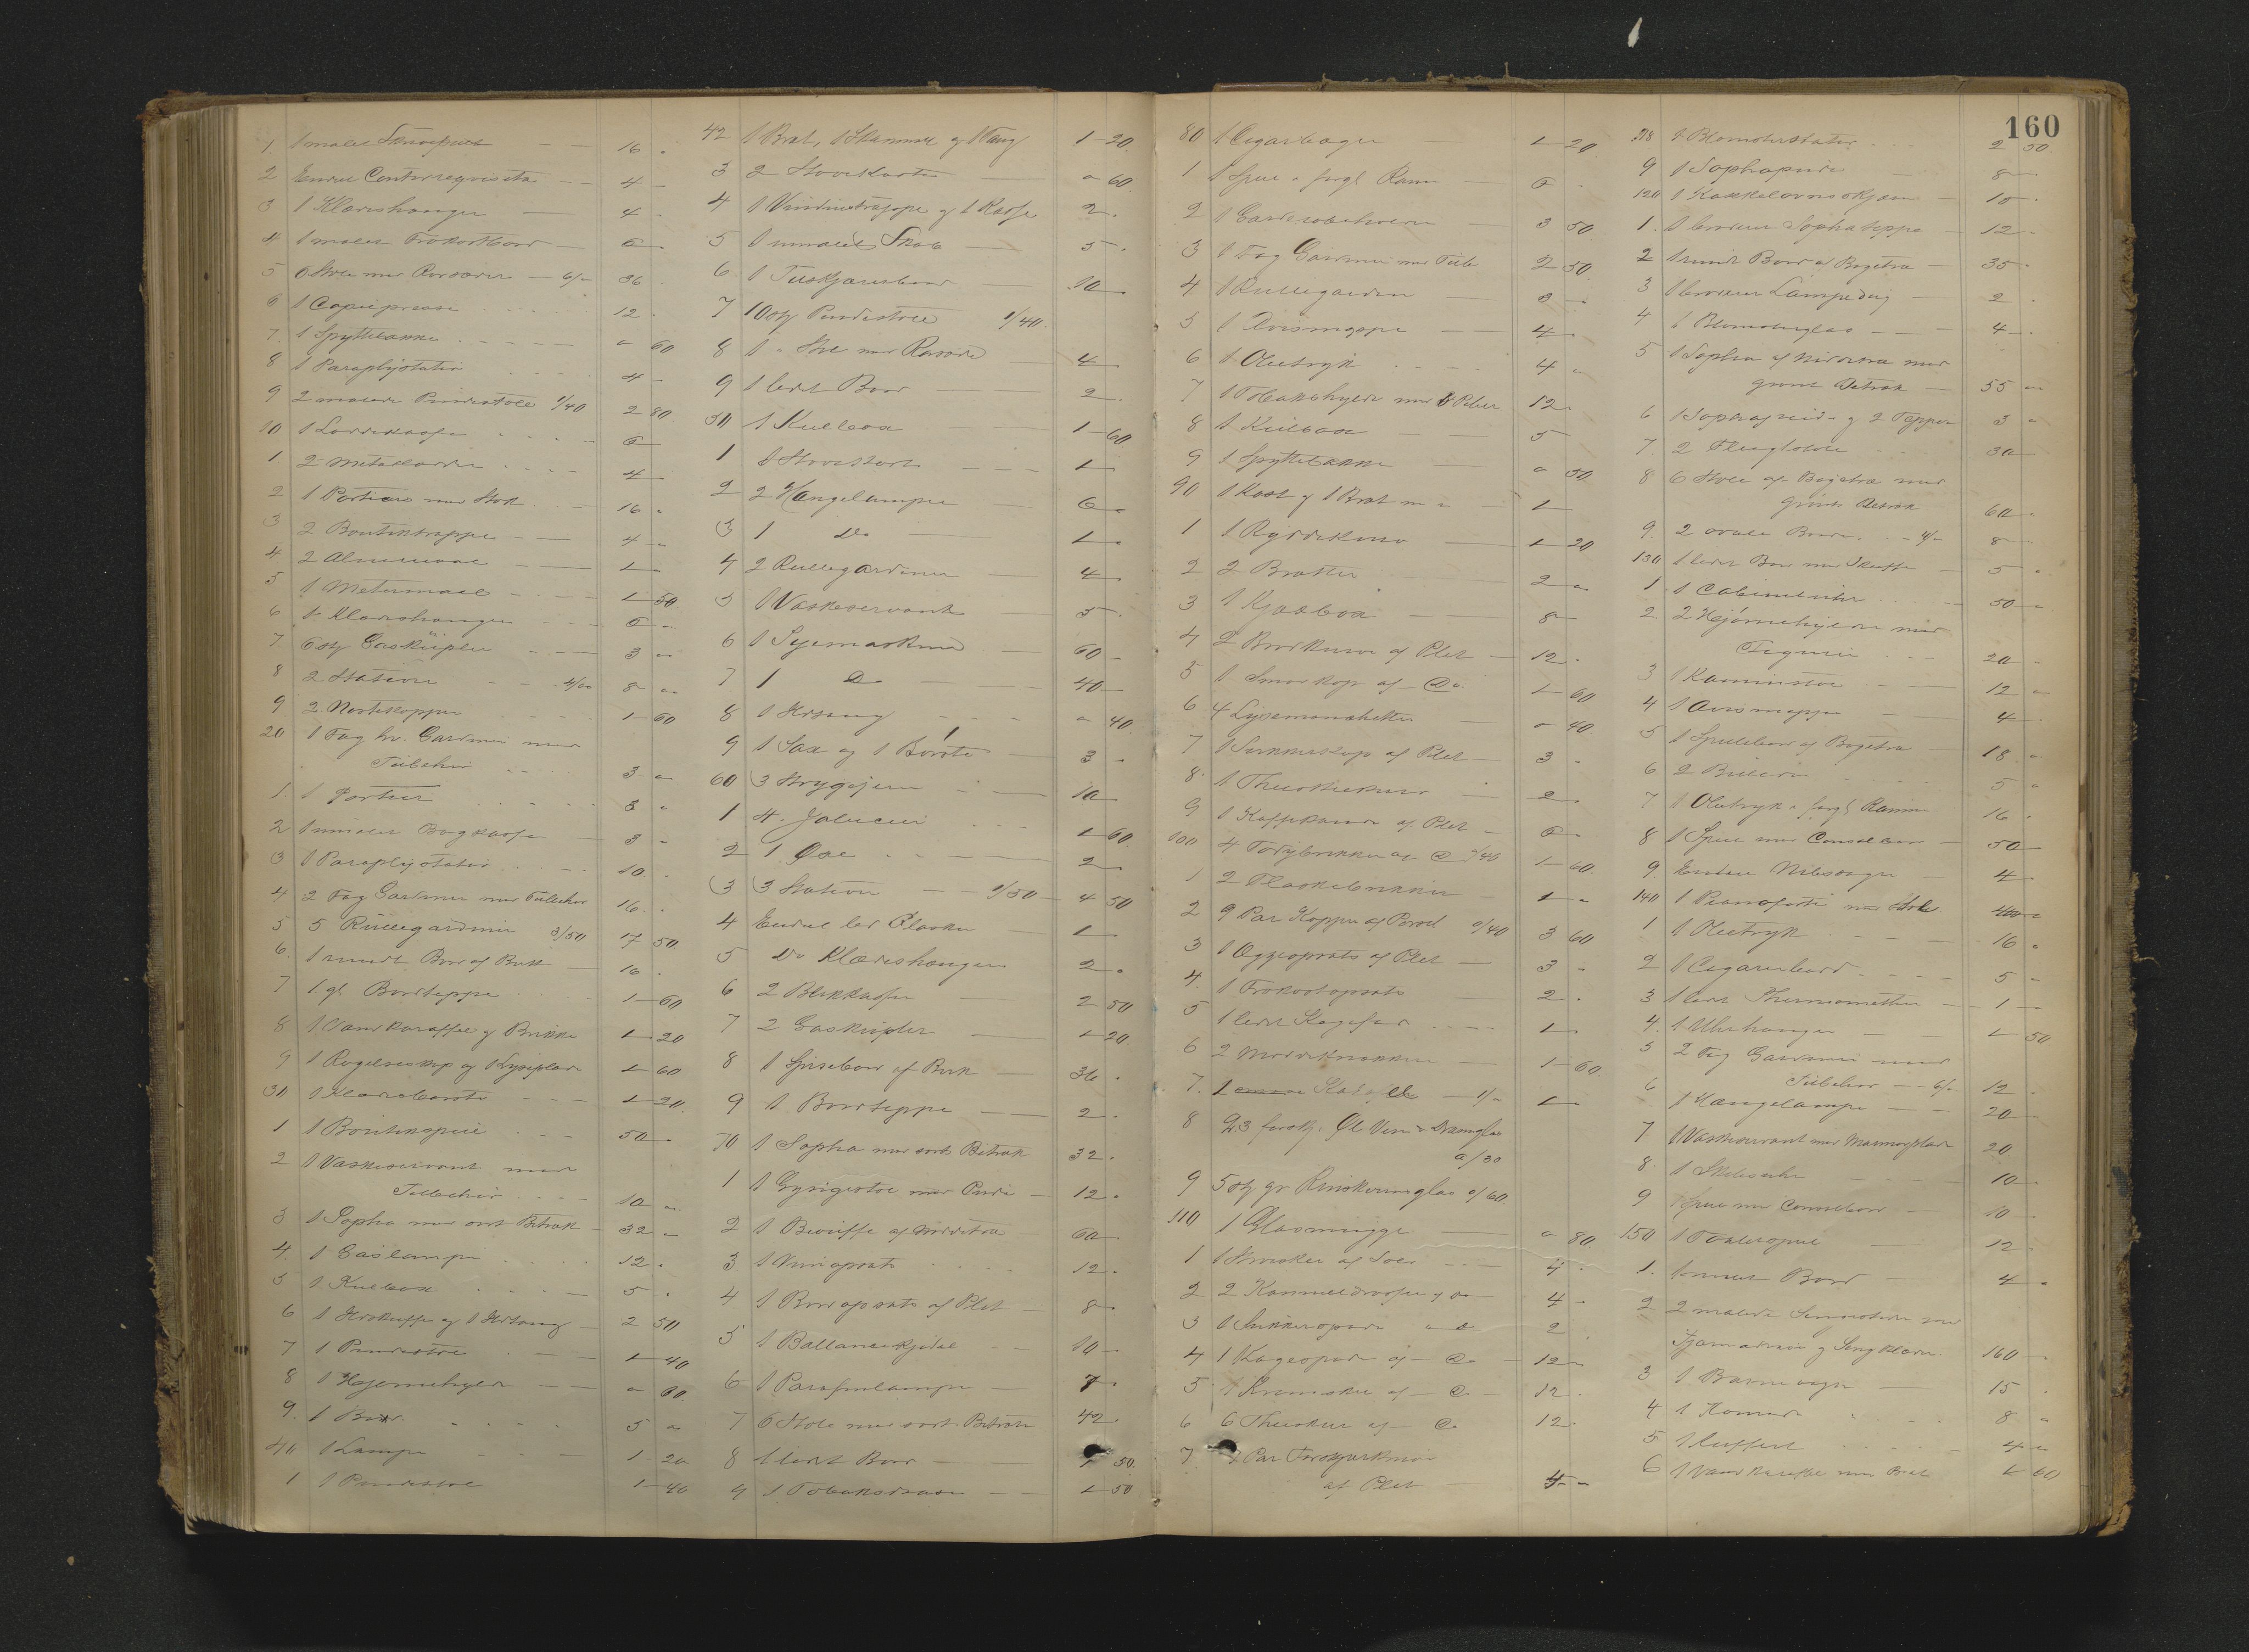 160
1 1 malet Skrivepult 16 "
2 Endel Contorreqvisita 4 -
3 1 Klædeshænger 4 -
4 1 malet Frokostbord 6 -
5 6 Stole med Rørsæder 6/- 36
6 1 Copiepresse 12 "
7 1 Spyttebakke " 60
8 1 Paraplystativ 4 -
9 2 malede Pindestole 1/40 2 80
10 1 Loddekasse 6 -
1 2 Metallamper 4 -
2 1 Portiere med Stok 16 "
3 2 Boutiktrappe 4 "
4 2 Alenmaal 1 -
5 1 Metermaal 1 50
6 1 Klædeshænger 6 "
7 6 stk Gaskupler 3 "
8 2 Stativer 4/00 8 "
9 2 Messtekopper 1 60
20 1 Fag hv. Gardiner med
Tilbehør 3 "
1 1 Portier 3 "
2 1 umalet Bogkasse 3 -
3 1 Paraplystativ 10 "
4 2 Fag Gardiner med Tilbehør 16 "
5 5 Rullegardiner 3/50 17 50
6 1 rundt Bord af Birk 16 "
7 1 gl. Bordteppe 1 60
8 1 Vandkaraffel og Brikke 1 20
9 1 Røgelseskop og 1 Lyseplade 1 60
30 1 Klædebørste 1 20
1 1 Boutikspeil 50 -
2 1 Vaskeservant med
Tilbehør 10 "
3 1 Sopha med sort Betræk 32 "
4 1 Gaslampe 12 "
5 1 Kulbox 5 "
6 1 Ildskuffe og 1 Ildtang 2 50
7 1 Pindestol 1 40
8 1 Hjørnehylde " 60
9 1 Bord 5 "
40 1 Lampe 1 20
1 1 Pindestol 1 40
42 1 Bræt, 1 Skammel og 1 Tang 1 20
3 2 Stovekoste " 60
4 1 Vindustrappe og 1 Kasse 2 "
5 1 umalet Skab 5 "
6 1 Tilskjærerbord 10 -
7 10 stk Pindestole 1/40
8 1 " Stol med Rørsæde 4 -
9 1 lidet Bord 2 "
50 1 Kulbox 1 60
1 1 Stovekost 1 -
2 2 Hængelamper 6 "
3 1 Do 1 -
4 2 Rullegardiner 4 -
5 1 Vaskeservant 5 "
6 1 Symaskine 60 -
7 1 Do 40 -
8 1 Ildtang " 40
9 1 Sax og 1 Børste 3 "
60 3 Strygejern 10 -
1 4 Jalucier 1 60
2 1 Øxe 2 -
3 3 Stativer 1/50 4 50
4 Endel led Flasker 1 -
5 Do Klædeshænger 2 "
6 2 Blikkasser 2 50
7 2 Gaskupler 1 20
8 1 Spisebord af Birk 36 "
9 1 Bordteppe 2 "
70 1 Sopha med sort Betræk 32 "
1 1 Gyngestol med Pude 12 "
2 1 Beauffe af Nødetræ 60 -
3 1 Vinopsats 12 "
4 1 Bordopsats af Plet 8 -
5 1 Ballancekjedel 10 -
6 1 Parafinlampe 7 "
7 6 Stole med sort Betræk 42 "
8 1 lidet Bord 50
9 1 Tobaksdaase 1 50
80 1 Cigarbæger 1 20
1 1 Speil i forgl. Ramme 6 -
2 1 Garderobeholder 3 50
3 1 Fag Gardiner med Tilb. 2 50
4 1 Rullegardin 3 -
5 1 Avismappe 4 -
6 1 Olietryk 4 "
7 1 Tobakshylde med 8 Piber 12 "
8 1 Kulbox 5
9 1 Spyttebakke " 50
90 1 Kost og 1 Bræt m. m 1 -
1 1 Rygdekurv 1 20
2 2 Bratter 2 "
3 1 Kjødbox 8 -
4 2 Brødkurve af Plet 12 "
5 1 Smørkop af Do 1 60
6 4 Lysemanchetter " 40
7 1 Sukkerskap af Plet 3 "
8 1 Theskiekurv 2 "
9 1 Kaffekande af Plet 6 -
100 4 Toddybrikker af Do "/40 1 60
1 2 Flaskebrikker 1 "
2 9 Par Kopper af Porcel "/40 3 60
3 1 Æggeopsats af Plet 3 "
4 1 Frokostopsats 2 "
5 1 lidet Kagefad 1 -
6 2 Nøddeknækkere 1 60
7 1
8 23 forskj. Øl Vin & Dramglas
"/30
9 5 stk gr. Rhinskvinsglas "/60
110 1 Glasmugge " 80
1 1 Strøske af Sølv 4 "
2 2 4 "
3 1 Sukkerspade " Do 2 "
4 1 Kagespade af Do 12 "
5 1 af Do 12 "
6 6 Theskeer af Do 12 "
7 1 Par Forskjærkniver
af Plet 4 -
118 1 Blomsterstativ 2 50
9 1 Sophapude 8 -
120 1 Kakkelovnsskjærm 10 "
1 1 broderet Sophateppe 12 "
2 1 rundt Bord af Bøgetræ 35 "
3 1 broderet Lampedug 2 "
4 1 Blomsterglas 4 "
5 1 Sopha af Nødetræ med
grønt Betræk 55 "
6 1 Sophapude og 2 Tepper 3 "
7 2 Fløistole 30 -
8 6 Stole af Bøgetræ med
grønt Betræk 60 "
9 2 ovale Borde 4/- 8 -
130 1 lidet Bord med Skuffe 5 "
1 1 Cabinetsuhr 50 "
2 2 Hjørnehylder med
Figurer 20 "
3 1 Kaminstol 12 "
4 1 Avismappe 4 "
5 1 Spillebord af Bøgetræ 18 "
6 2 Billeder 5 "
7 1 Olietryk i forgl. Ramme 16 "
8 1 Speil med Consolbord 50 -
9 Endel Nibssager 4 -
140 1 Pianoforte med Stol 400 "
1 1 Olietryk 16 "
2 1 Cigarenbord 5 "
3 1 lidet Thermomether 1 -
4 1 Uhrhænger 1 50
5 2 Fag Gardiner med
Tilbehør 6/- 12 "
6 1 Hængelampe 20 -
7 1 Vaskeservant med Marmorplade 20
8 1 Stileuhr 10 -
9 1 Speil med Consolbord 10 -
150 1 Toiletspeil 12 "
1 1 malet Bord 4 "
2 2 malede Sengesteder med
Fjærmadrasse og Sengklæder 160 -
3 1 Barnevogn 15 "
4 1 Komode 8 "
5 1 Kuffert 4 "
6 1 Vandkaraffel med Bræt 1 60